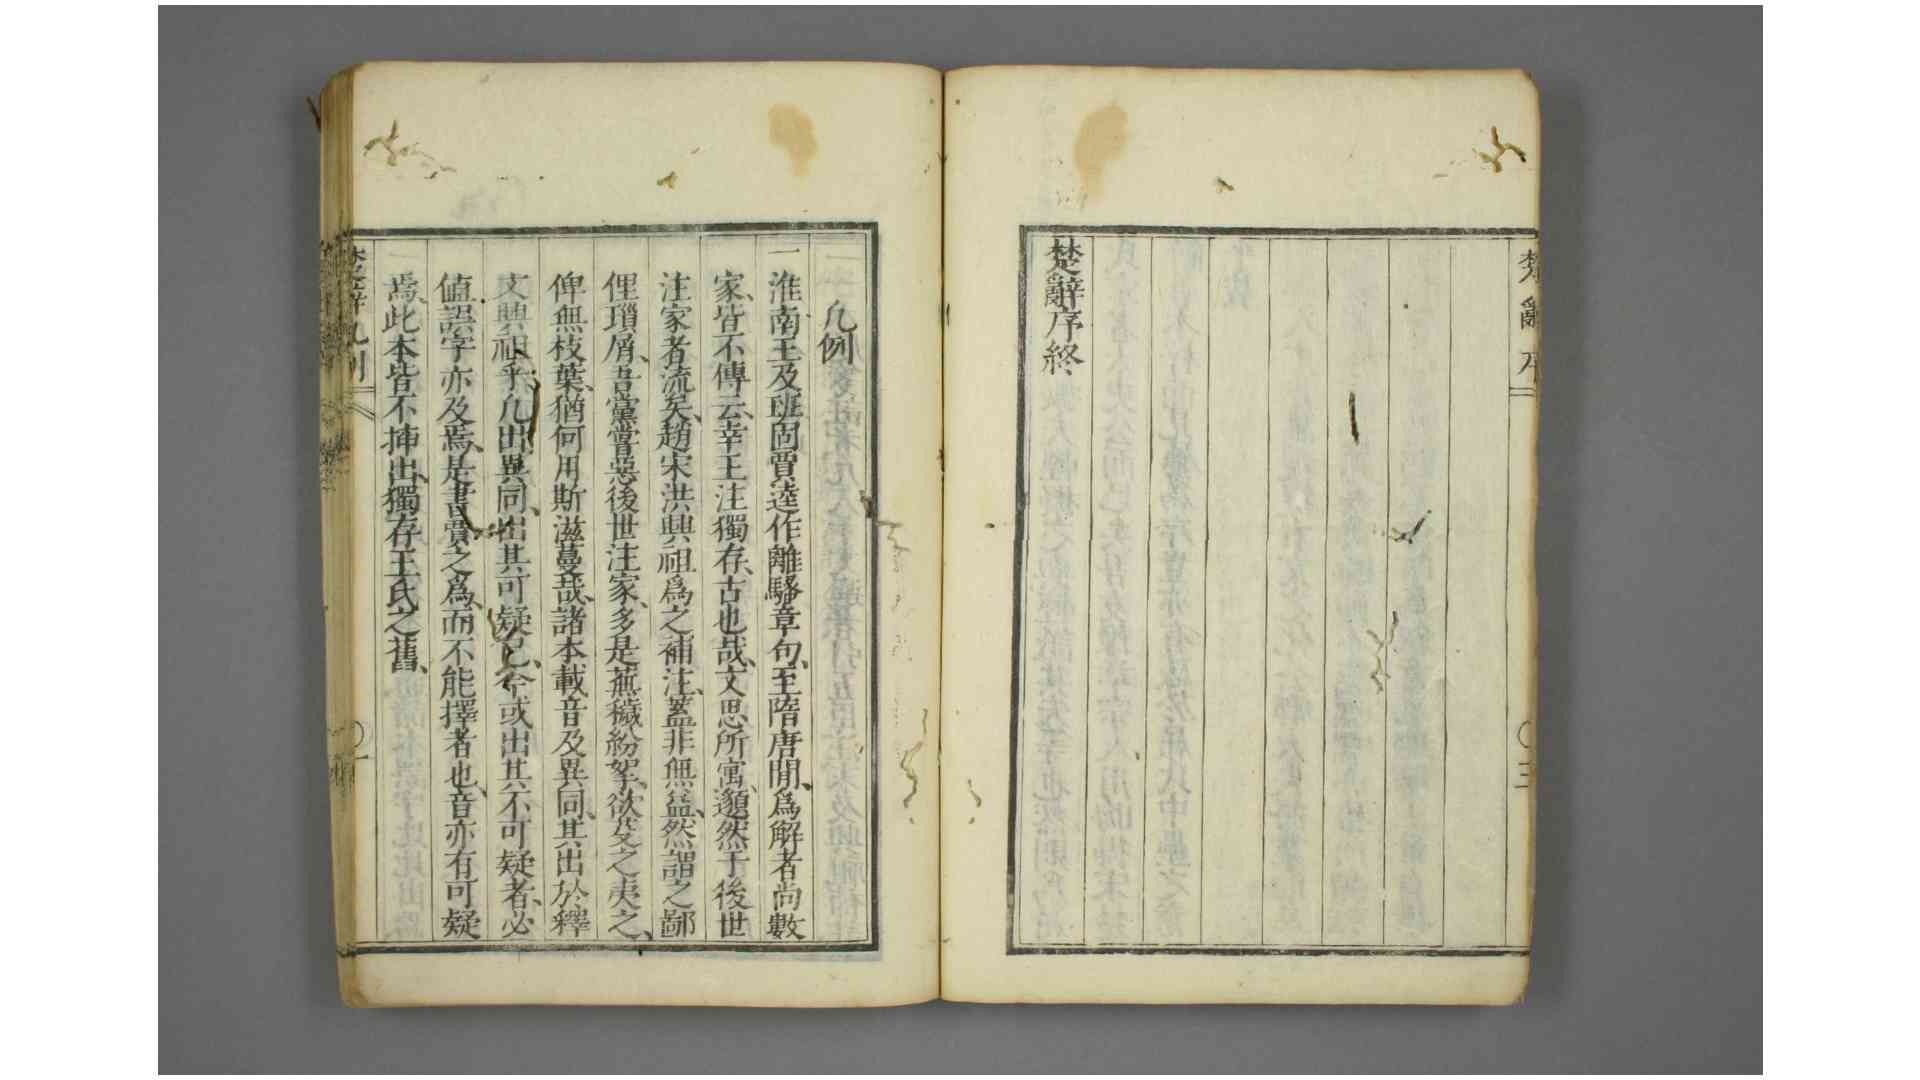 楚辭序
三
楚辭序終
凡例
一淮南王及班固賈逵作離騷章句、至隋唐閒、爲解者尚數
家、皆不傳云、幸王注獨存、古也哉、文思所寓、邈然于後世
注家者流矣、趙宋洪興祖爲之補注、蓋非無益、然謂之鄙
俚瑣屑、吾黨嘗惡後世注家、多是蕪穢紛挐、欲芟之夷之、
俾無枝葉、猶何用斯滋蔓哉、諸本載音及異同、其出於釋
文興祖乎、凡出異同、出其可疑已、今或出其不可疑者、必
値誤字亦及焉、是書賈之爲、而不能擇者也、音亦有可疑
焉、此本皆不揷出、獨存王氏之舊、
楚辭凡例
一